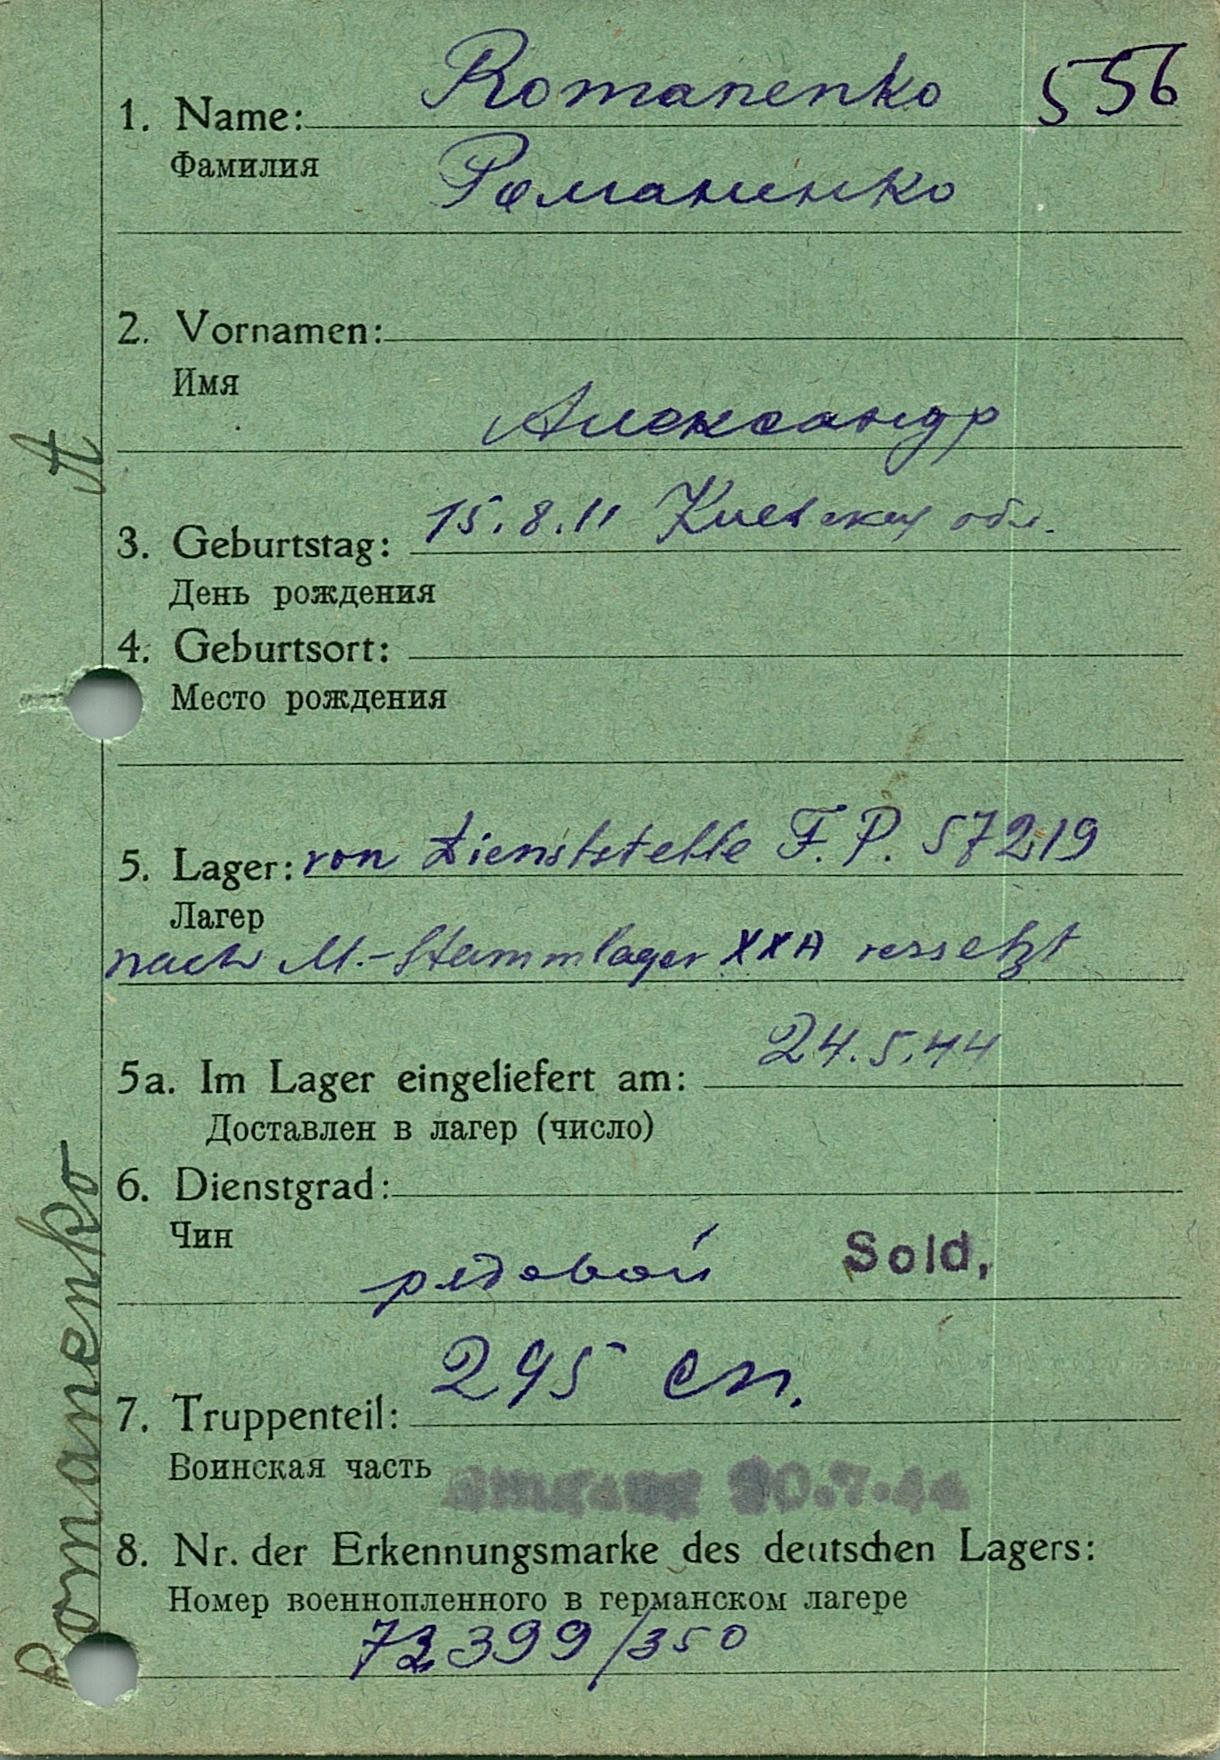 Romanenko 556
1. Name:
Фамилия
Романенко
2. Vornamen:
Имя
Александр
15.8.11 Киевская обл.
3. Geburtstag:
День рождения
4. Geburtsort:
Место рождения
5. Lager: von Dienststelle F.P. 57219
Лагер
nach M.-Stammlager XXA versetzt
24.5.44
5a. Im Lager eingeliefert am:
Доставлен в лагер (число)
6. Dienstgrad:
Чин
рядовой Sold,
295 сп.
7. Truppenteil:
Воинская часть
20.7.44
8. Nr. der Erkennungsmarke des deutschen Lagers:
Номер военнопленного в германском лагере
72399/350
Romanenko A